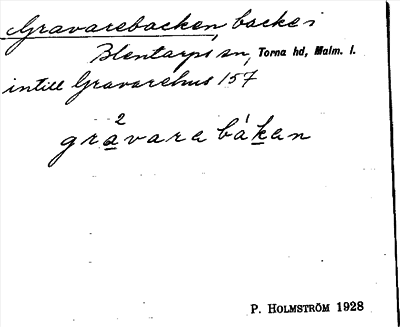 Gravarebacken, backe i
Blentarps sn, Torna hd, Malm. l.
intill Gravarehus 157
2
gràvara bákan
P. HOLMSTRÖM 1928